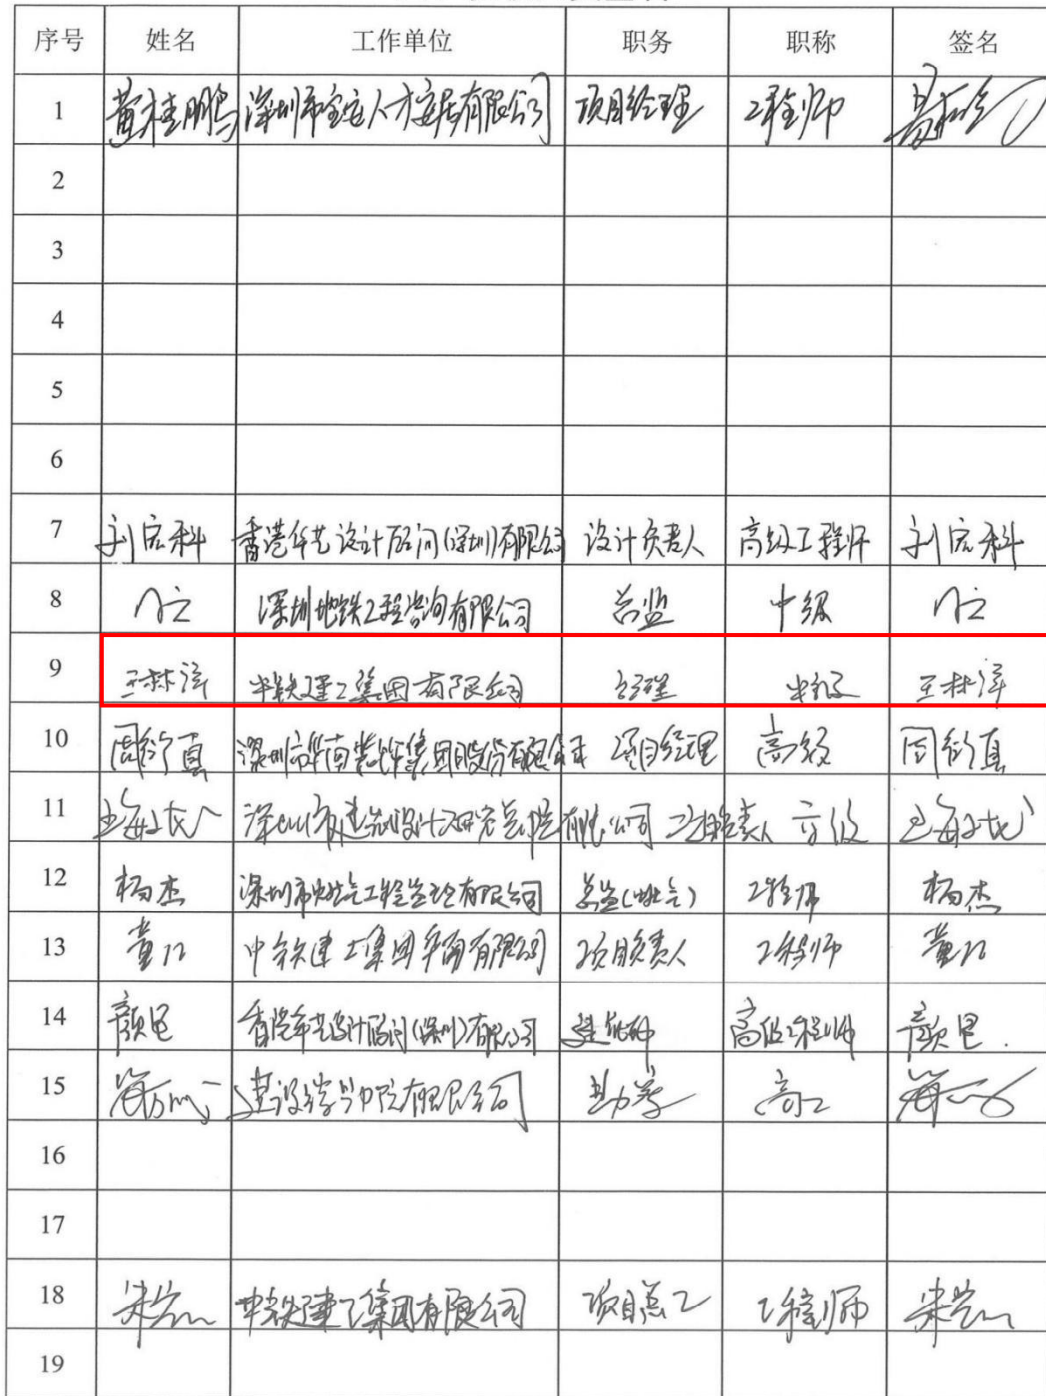 序号 姓名 工作单位 职务 职称 签名
1 黄桂鹏 深圳市宝安人才安居有限公司 项目经理 工程师
2
3
4
5
6
7 刘宏科 香港华艺设计顾问(深圳)有限公司 设计负责人 高级工程师 刘宏科
8 深圳地铁工程咨询有限公司 总监 中级
9 王林洋 中铁建工集团有限公司 经理 中级 王林洋
10 周衍真 深圳市华南装饰集团股份有限公司 项目经理 高级 周衍真
11 深圳市建筑设计研究总院有限公司 高级
12 杨杰 深圳市燃气工程监理有限公司 总监(燃气) 工程师 杨杰
13 中铁建工集团华南有限公司 项目负责人 工程师
14 颜昆 香港华艺设计顾问(深圳)有限公司 建筑师 高级工程师 颜昆
15 有限公司 勘察 高工
16
17
18 中铁建工集团有限公司 项目总工 工程师
19